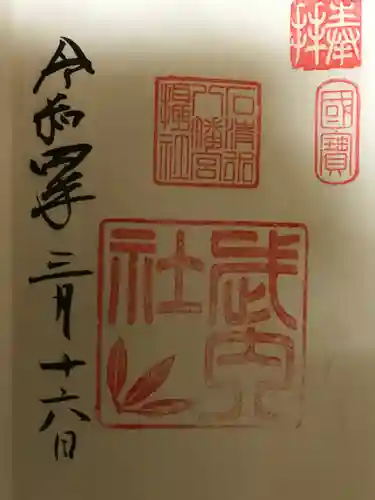 奉拝
國寶
石清水
八幡宮
攝社
武内
社
令和四年三月十六日